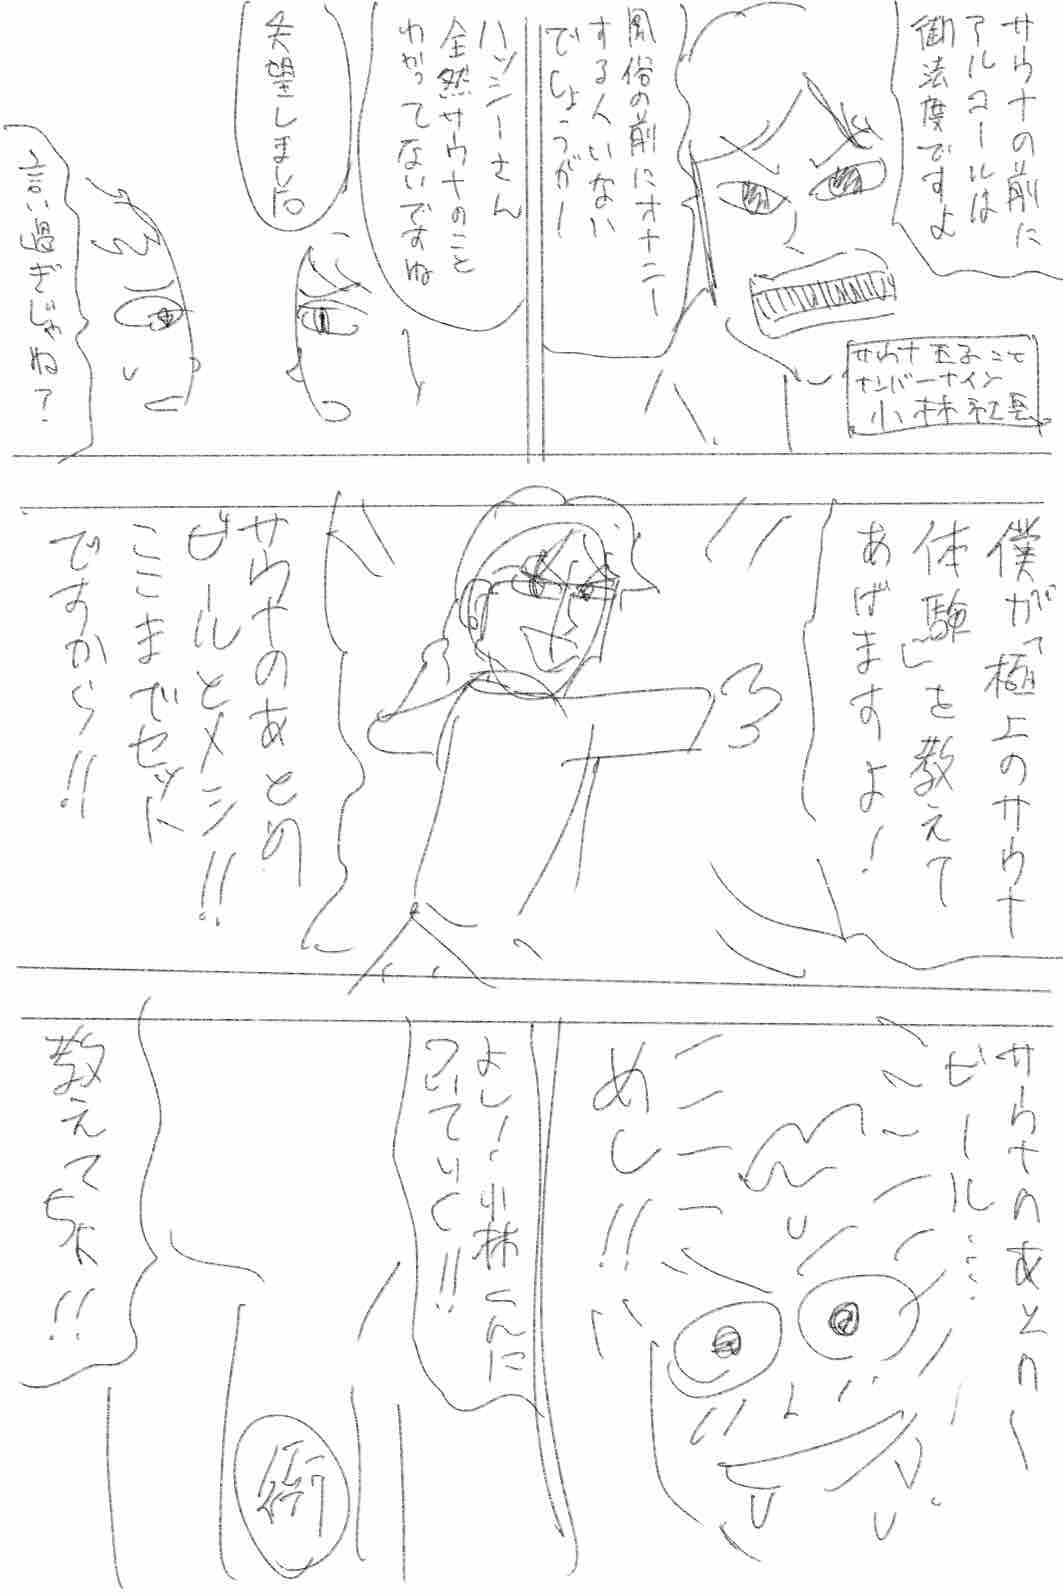 サウナの前に
アルコールは
御法度ですよ
風俗の前にオナニー
する人いない
でしょうがー
サウナ王子こと
ナンバーナイン
小林社長
ハッシーさん
全然サウナのこと
わかってないですね
失望しました
言い過ぎじゃね?
僕が「極上のサウナ
体験」を教えて
あげますよ!
サウナのあとの
ビールとメシ!!
ここまでセット
ですから!!
サウナのあとのー
ビール…
めし!!
よし!小林くんに
ついていく!!
教えてちょ!!